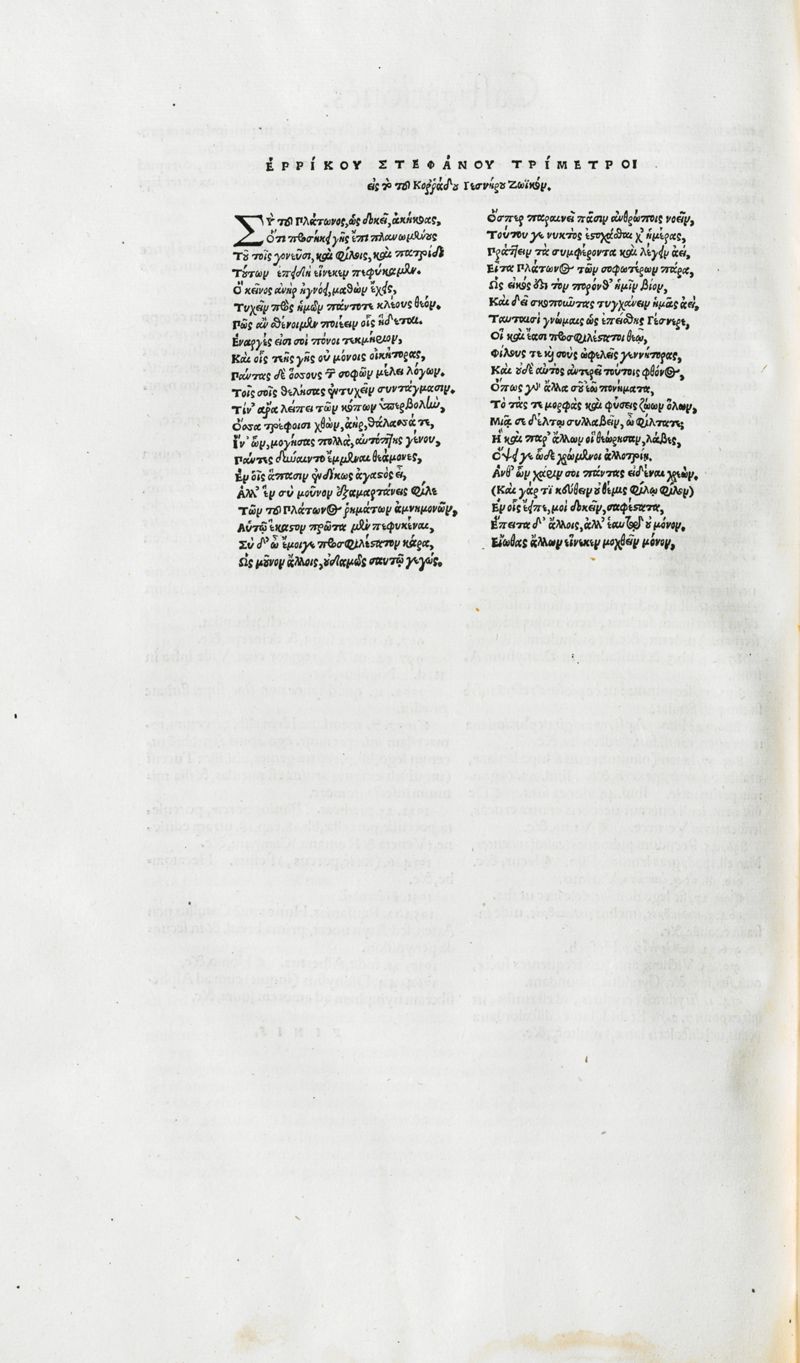 ἘΡΡΊΚΟΥ ΣΤΕΦΆΝΟΥ ΤΡΊΜΕΤΡΟΙ
εἰς τὸ τοῦ Κορράδου Γεσνήρου Ζωϊκόν.
ΣῪ τοῦ Πλάτωνος, ὡς δοκεῖ, ἀκήκοας,
Ὅτι προσήκει γῆς ἔπι πλανωμένους
Τοῦ τοῖς γονεῦσι, καὶ φίλοις, καὶ πατρίδι
Τούτων ἐπειδὴ εἵνεκεν πεφύκαμεν.
Ὃ κεῖνος ἀνὴρ ἠγνόει, μαθὼν ἔχεις,
Τυχεῖν πρὸς ἡμῶν πάντοτε κλέους θεόν.
Πῶς ἂν σθένοιμεν ποιέειν οἷς ἥδεται.
Ἐναργές εἰσι σοὶ πόνοι τεκμήριον,
Καὶ οἷς τῆς γῆς οὐ μόνοις οἰκήτορας,
Πάντας δὲ ὅσους τῶν σοφῶν μέλει λόγων.
Τοῖς σοῖς θελήσας ἐντυχεῖν συντάγμασιν.
Τίν' ἆρα λείπει τῶν κόπων ὑπερβολὴν,
Ὅσα τρέφουσι χθὼν, ἀὴρ, θάλασσά τε,
Ἵν' ὧν, μογήσας πολλὰ, αὐτόπτης γένου,
Πάντες δύναιντο ἔμμεναι θεάμονες,
Ἐν οἷς ἅπασιν ἐνδίκως ἀγαστὸς εἶ,
Ἀλλ' ἓν σὺ μοῦνον ἐξαμαρτάνεις φίλε
Τῶν τοῦ Πλάτωνος ῥημάτων ἀμνημονῶν,
Αὑτῷ ἕκαστον πρῶτα μὲν πεφυκέναι,
Σὺ δ' ὦ ἔμοιγε προσφιλέστατον κάρα,
Ὡς μοῦνον ἄλλοις, οὐδαμῶς σαυτῷ γεγώς.
Ὅσπερ παραινεῖ πᾶσιν ἀνθρώποις νοεῖν,
Τούτου γε νυκτὸς ἐστοχάσθαι χ' ἡμέρας,
Πράττειν τὰ συμφέροντα καὶ λέγειν ἀεὶ,
Εἶτα Πλάτωνος τῶν σοφωτέρων πάρα,
Ὡς εἰκὸς ἐστι τὸν πορόνθ' ἡμῖν βίον,
Καὶ δεῖ σκοποῦντας τυγχάνειν ἡμᾶς ἀεὶ,
Ταύταισι γνώμαις ὡς ἐπείσθης Γέσνερε,
Οἳ καὶ ἔασι προσφιλέστατοι θεῷ,
Φίλους τε καὶ σοὺς ὠφελεῖς γεννήτορας,
Καὶ οὐδὲ αὐτὸς ἀντερεῖ τούτοις φθόνος,
Ὅπως γ' ἄλλα σοῦ ἐῶ πονήματα,
Τὸ τάς τε μορφὰς καὶ φύσεις ζώων ὅλων,
Μιᾷ σε δέλτῳ συλλαβεῖν, ὦ φίλτατε;
Ἢ καὶ παρ' ἄλλων οἳ θεώρησαν, λάβες,
Ὄψει γε ὧδε χρώμενοι ἀλλοτρίῃ.
Ἀνθ' ὧν χάριν σοι πάντας εἰδέναι χρεὼν.
(Καὶ γάρ τι κεύθειν οὐ θέμις φίλῳ φίλον)
Ἐν οἷς ἔειπε, μοὶ δοκεῖν, σαφέστατα,
Ἔπειτα δ' ἄλλοις, ἀλλ' ἑαυτῷ οὐ μόνον,
Εἴωθας ἄλλων εἵνεκεν μοχθεῖν μόνον,